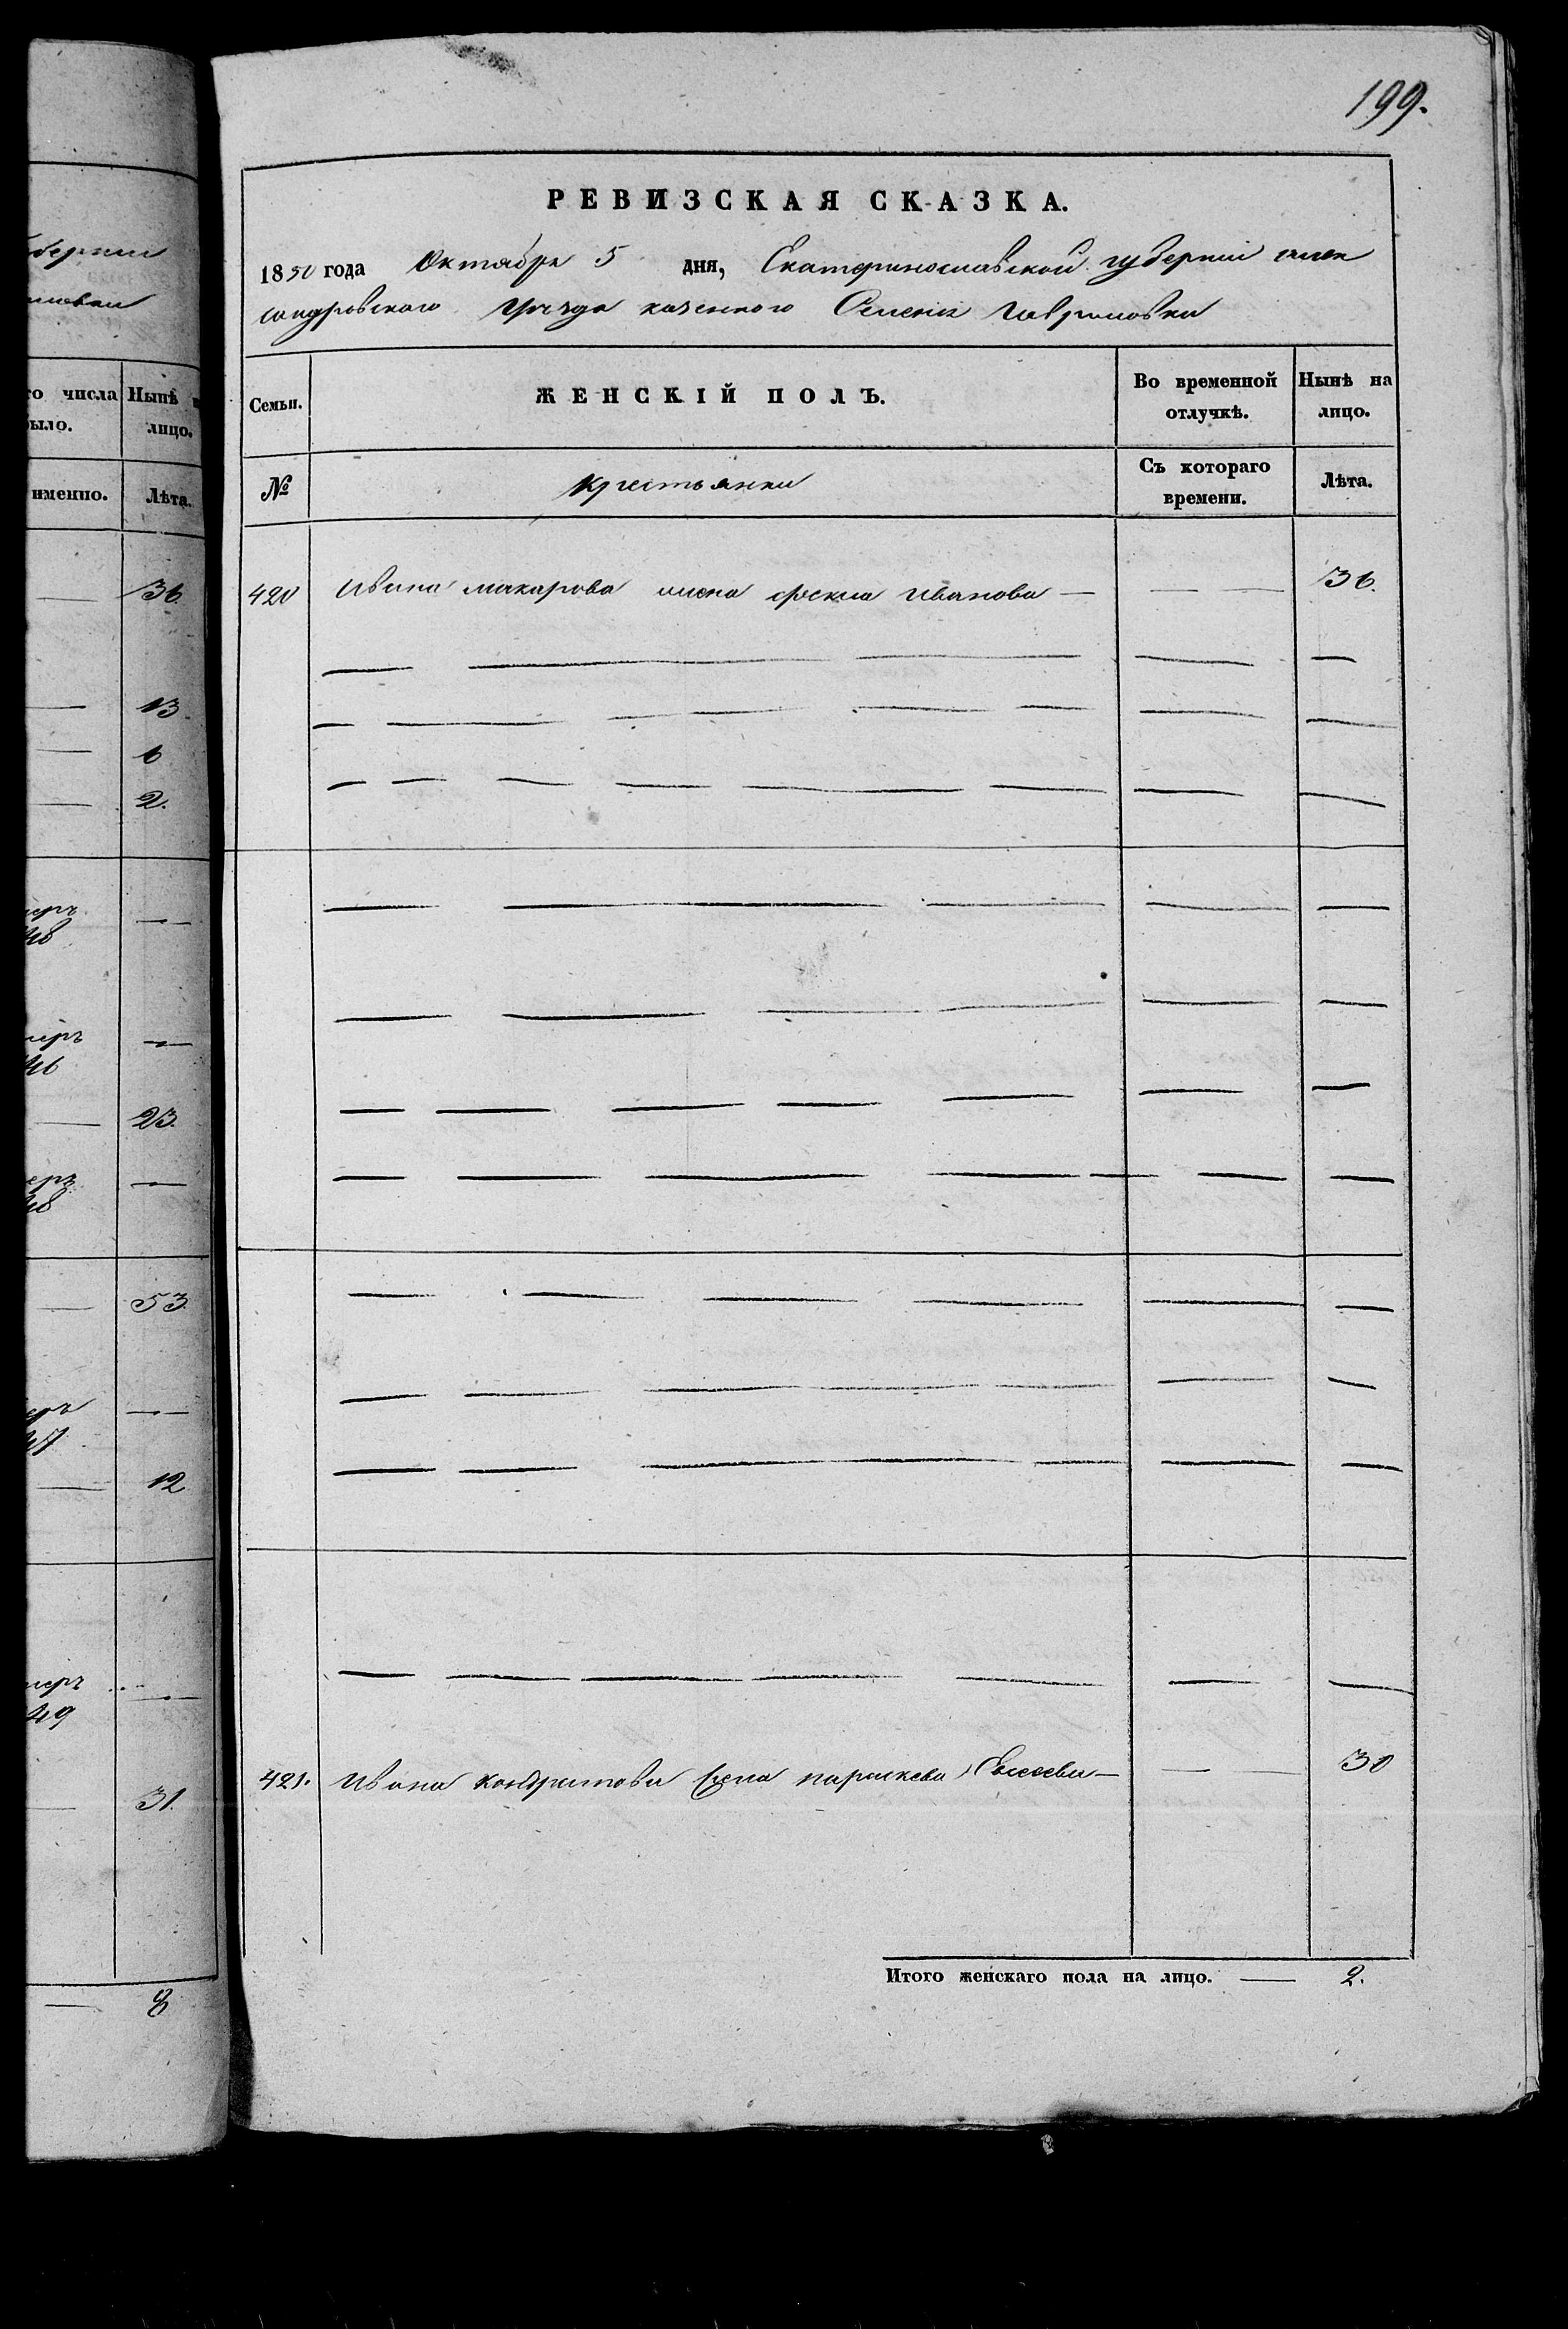 бернии
мовки
го числа Нынѣ н
было. лицо.
именно. Лѣта.
36.
13.
6
2.
меръ
48
меръ
46
23.
меръ
48
53
меръ
47
12
меръ
49
31.
8
199.
РЕВИЗСКАЯ СКАЗКА.
1850 года Октября 5 дня, Екатеринославской губерніи Алек
сандровского уѣзда казенного Селенія Гавриловки
Семьи. ЖЕНСКІЙ ПОЛЪ. Во временной отлучкѣ. Нынѣ на лицо.
№ Крестьянки Съ котораго времени. Лѣта.
420 Ивана Макарова жена Фекла Иванова — — — 36.
421. Ивана Кондратова жена Параскева — — — 30
Итого женскаго пола на лицо. — 2.